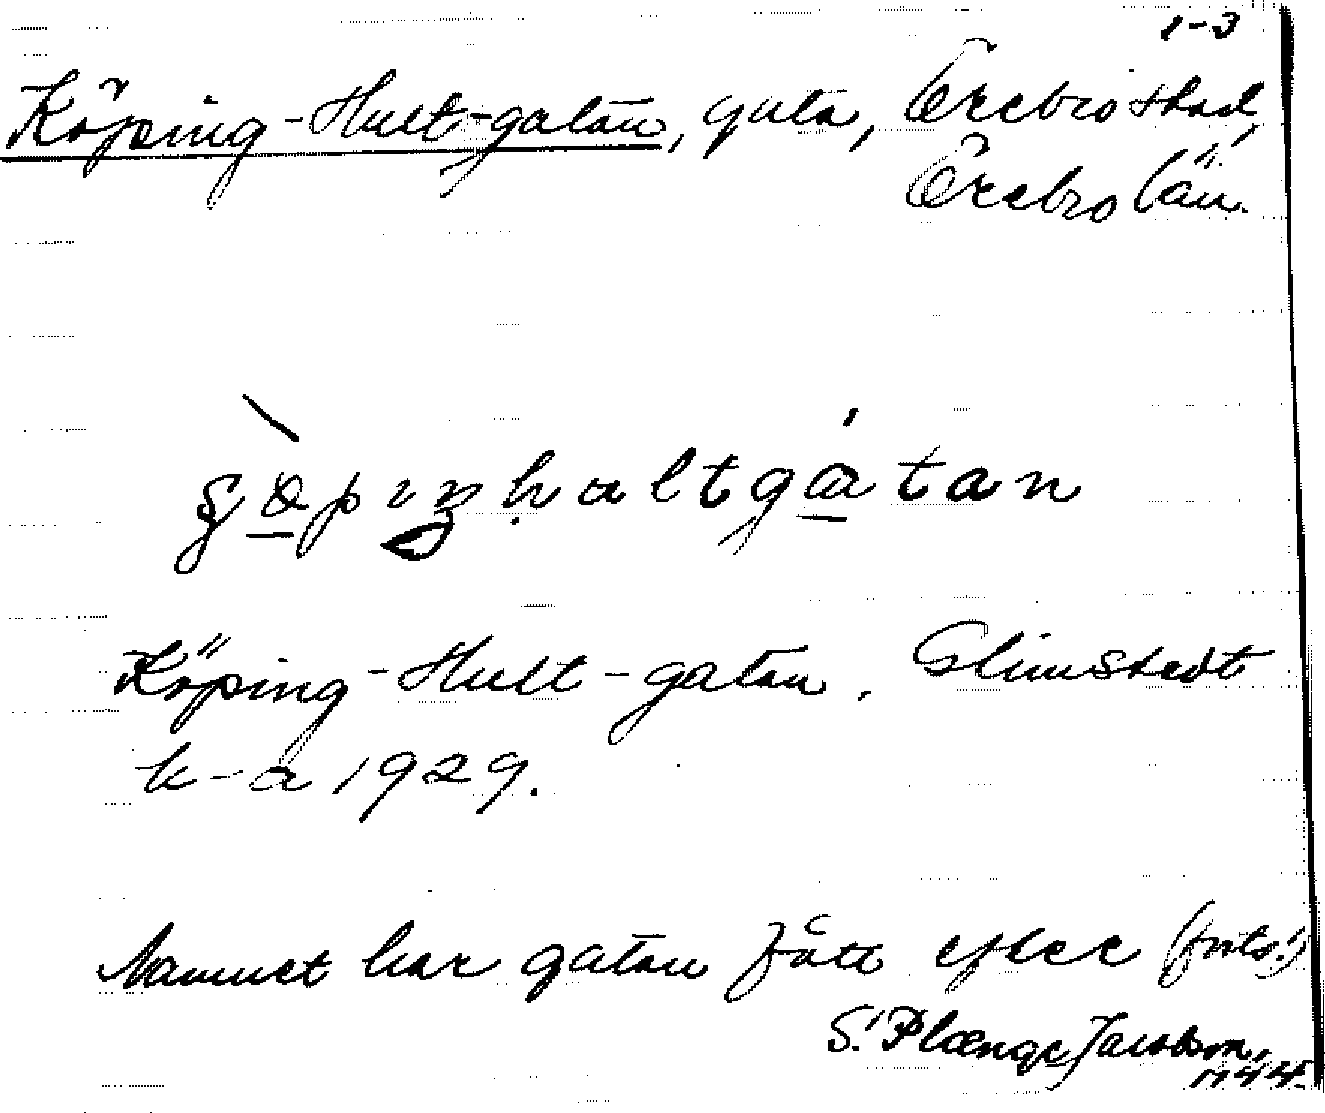 1-3
Köping-Hult-gatan, gata, Örebro stad,
Örebro län.
Köping-Hult-gatan. Glimstedt
k-a 1929.
Namnet har gatan fått efter (forts.)
S. Plænge Jacobson,
1944.